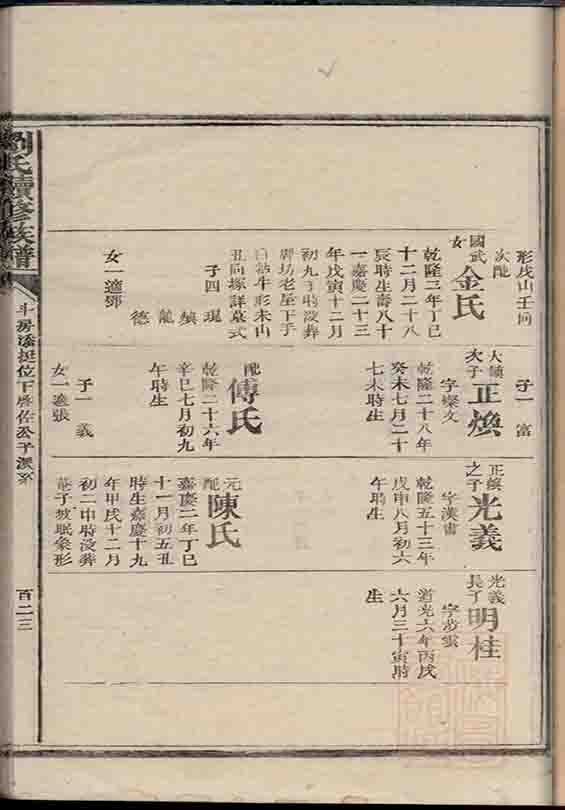 形戌山壬向
次配
國武
女
金氏
乾隆三年丁巳
十二月二十八
辰時生壽八十
一嘉慶二十三
年戊寅十二月
初九
時没葬
老屋下手
牛形未山
丑向塚詳墓式
子四
現
龍
德
女一適鄧
子一
富
次子
正煥
字燦文
乾隆二十八年
癸未七月二十
七未時生
配
傅氏
乾隆二十六年
辛巳七月初九
午時生
子一
義
女一適張
正煥
之子
光義
字漢書
乾隆五十三年
戊申八月初六
午時生
元配
陳氏
嘉慶二年丁巳
十一月初五丑
時生嘉慶十九
年甲戌十二月
初二申時没葬
子坡眠象形
光義
長子
明桂
道光六年丙戌
六月三十寅時
生
劉氏續修族譜
百二三